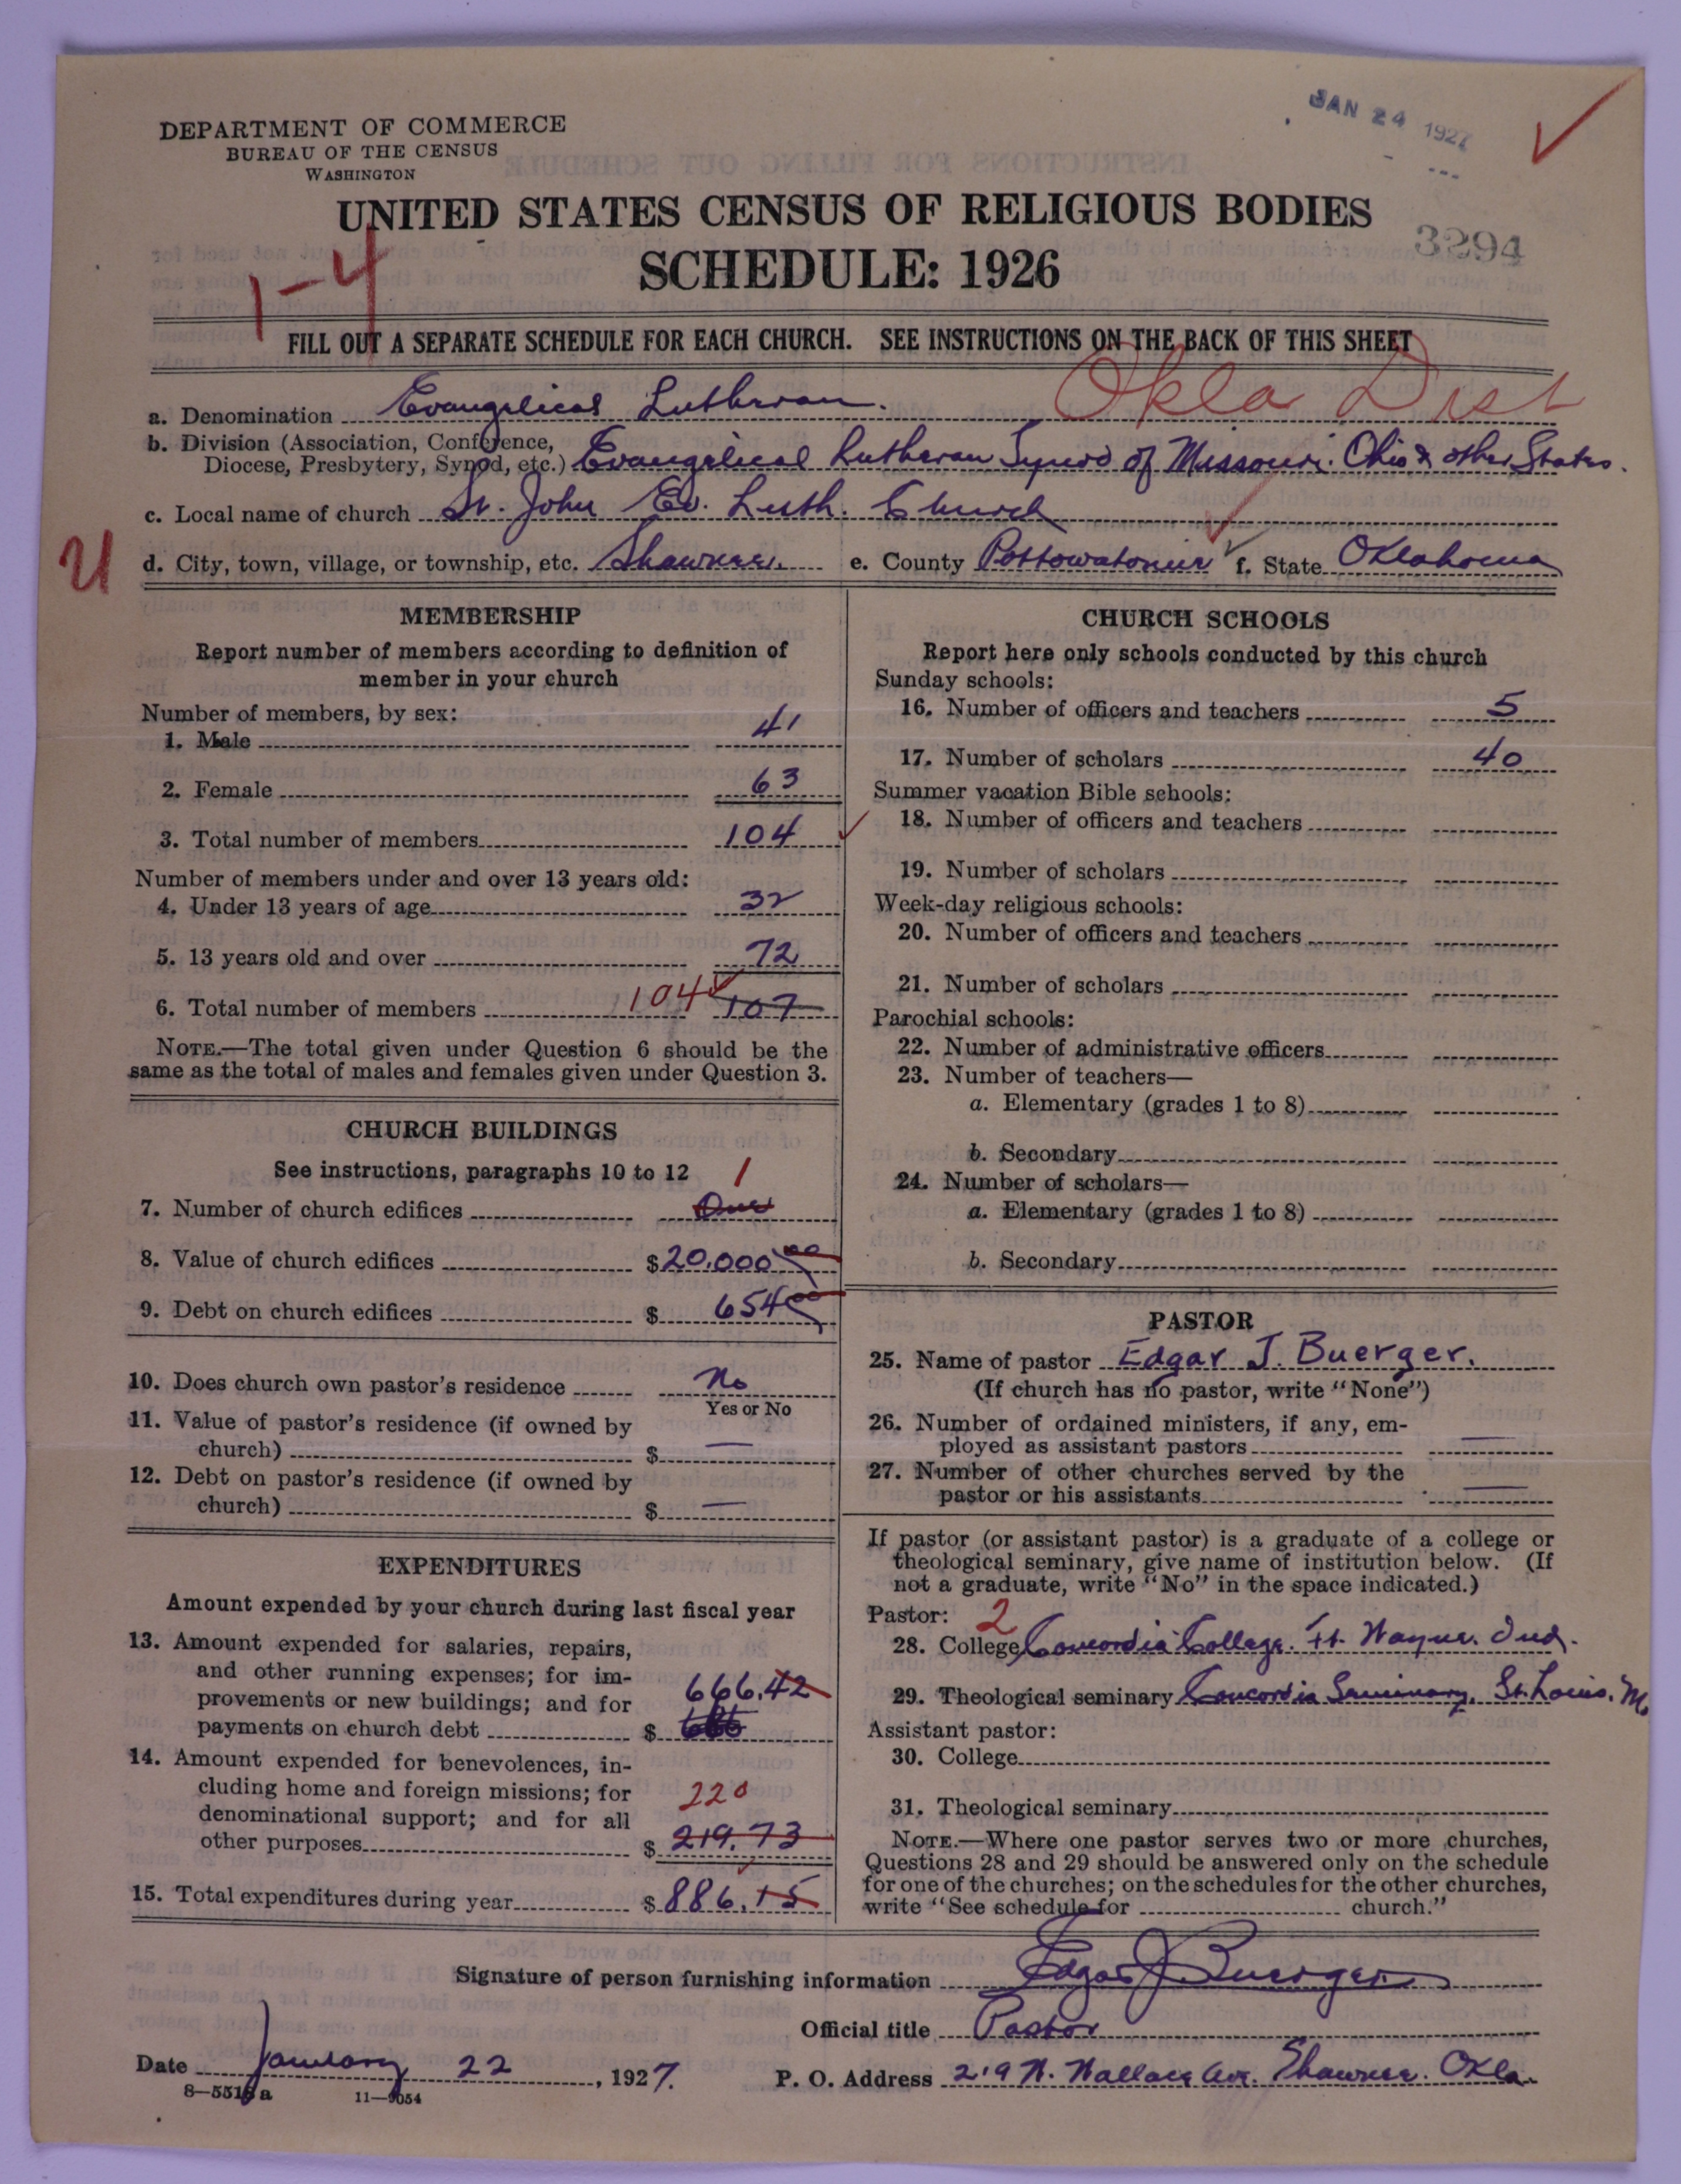 DEPARTMENT OF COMMERCE
BUREAU OF THE CENSUS
WASHINGTON
JAN 24 1927
UNITED STATES CENSUS OF RELIGIOUS BODIES
SCHEDULE: 1926
3294
1-4
FILL OUT A SEPARATE SCHEDULE FOR EACH CHURCH. SEE INSTRUCTIONS ON THE BACK OF THIS SHEET
Okla Dist
a. Denomination Evangelical Lutheran.
b. Division (Association, Conference,
Diocese, Presbytery, Synod, etc.) Evangelical Lutheran Synod of Missouri. Ohio & other States.
c. Local name of church St. John Ev. Luth. Church
U
d. City, town, village, or township, etc. Shawnee. e. County Pottowatomie f. State Oklahoma
MEMBERSHIP
Report number of members according to definition of
member in your church
Number of members, by sex:
1. Male 41
2. Female 63
3. Total number of members 104
Number of members under and over 13 years old:
4. Under 13 years of age 32
5. 13 years old and over 72
6. Total number of members 104 107
NOTE.—The total given under Question 6 should be the
same as the total of males and females given under Question 3.
CHURCH BUILDINGS
See instructions, paragraphs 10 to 12 1
7. Number of church edifices One
8. Value of church edifices $20.000 00
9. Debt on church edifices $ 654 00
10. Does church own pastor's residence No
Yes or No
11. Value of pastor's residence (if owned by
church) $ —
12. Debt on pastor's residence (if owned by
church) $ —
EXPENDITURES
Amount expended by your church during last fiscal year
13. Amount expended for salaries, repairs,
and other running expenses; for im-
provements or new buildings; and for 666.42
payments on church debt $
14. Amount expended for benevolences, in-
cluding home and foreign missions; for 220
denominational support; and for all
other purposes $ 219.73
15. Total expenditures during year $ 886.15
CHURCH SCHOOLS
Report here only schools conducted by this church
Sunday schools:
16. Number of officers and teachers 5
17. Number of scholars 40
Summer vacation Bible schools:
18. Number of officers and teachers
19. Number of scholars
Week-day religious schools:
20. Number of officers and teachers
21. Number of scholars
Parochial schools:
22. Number of administrative officers
23. Number of teachers—
a. Elementary (grades 1 to 8)
b. Secondary
24. Number of scholars—
a. Elementary (grades 1 to 8)
b. Secondary
PASTOR
25. Name of pastor Edgar J. Buerger.
(If church has no pastor, write "None")
26. Number of ordained ministers, if any, em-
ployed as assistant pastors —
27. Number of other churches served by the
pastor or his assistants —
If pastor (or assistant pastor) is a graduate of a college or
theological seminary, give name of institution below. (If
not a graduate, write "No" in the space indicated.)
Pastor: 2
28. College Concordia College. Ft. Wayne. Ind.
29. Theological seminary Concordia Seminary, St. Louis. Mo
Assistant pastor:
30. College
31. Theological seminary
NOTE.—Where one pastor serves two or more churches,
Questions 28 and 29 should be answered only on the schedule
for one of the churches; on the schedules for the other churches,
write "See schedule for church."
Signature of person furnishing information Edgar J. Buerger
Official title Pastor
Date January 22, 1927. P. O. Address 219 N. Wallace Ave. Shawnee. Okla.
8—5518a 11—9054